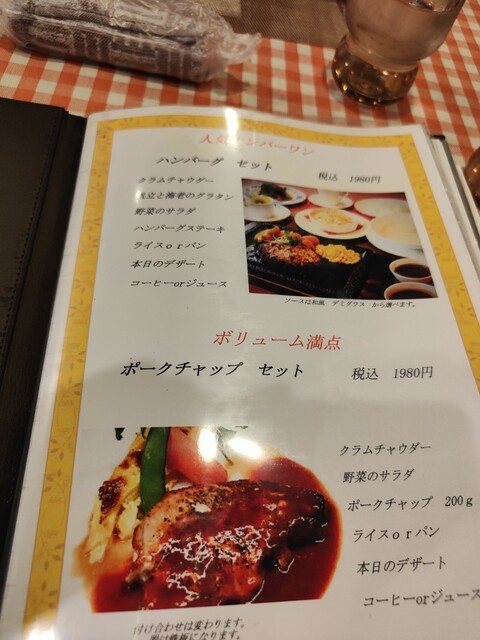 人気ナンバーワン
ハンバーグ セット 税込 1980円
クラムチャウダー
帆立と海老のグラタン
野菜のサラダ
ハンバーグステーキ
ライスorパン
本日のデザート
コーヒーorジュース
ソースは和風 デミグラス から選べます。
ボリューム満点
ポークチャップ セット 税込 1980円
クラムチャウダー
野菜のサラダ
ポークチャップ 200g
ライスorパン
本日のデザート
コーヒーorジュース
付け合わせは変わります。
皿は鉄板になります。